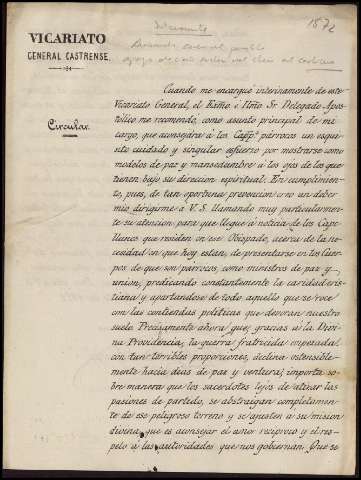 1872
VICARIATO
GENERAL CASTRENSE.
Circular.
Cuando me encargué interinamente de este
Vicariato General, el Exmo é Iltmo Sr. Delegado Apos-
tólico me recomendó, como asunto principal de mi
cargo, que aconsejára á los Capps. párrocos un esqui-
sito cuidado y singular esfuerzo por mostrarse como
modelos de paz y mansedumbre á los ojos de los que
tienen bajo su direccion espiritual. En cumplimien-
to, pues, de tan oportuna prevencion creo un deber
mio dirigirme á V. S. llamando muy particularmen-
te su atencion para que llegue á noticia de los Cape-
llanes que residen en ese Obispado, acerca de la ne-
cesidad en que hoy estan, de presentarse en los Cuer-
pos de que son párrocos, como ministros de paz y
union, predicando constantemente la caridad cris-
tiana y apartandose de todo aquello que se roce
con las contiendas políticas que devoran nuestro
suelo. Precisamente ahora que, gracias á la Divi-
na Providencia, la guerra fratricida empezada
con tan terribles proporciones, declina ostensible-
mente hácia dias de paz y ventura, importa so-
bre manera que los sacerdotes lejos de atizar las
pasiones de partido, se abstraigan completamen-
te de ese peligroso terreno y se ajusten á su mision
divina, que es aconsejar el amor recíproco y el res-
peto á las autoridades que nos gobiernan. Que se